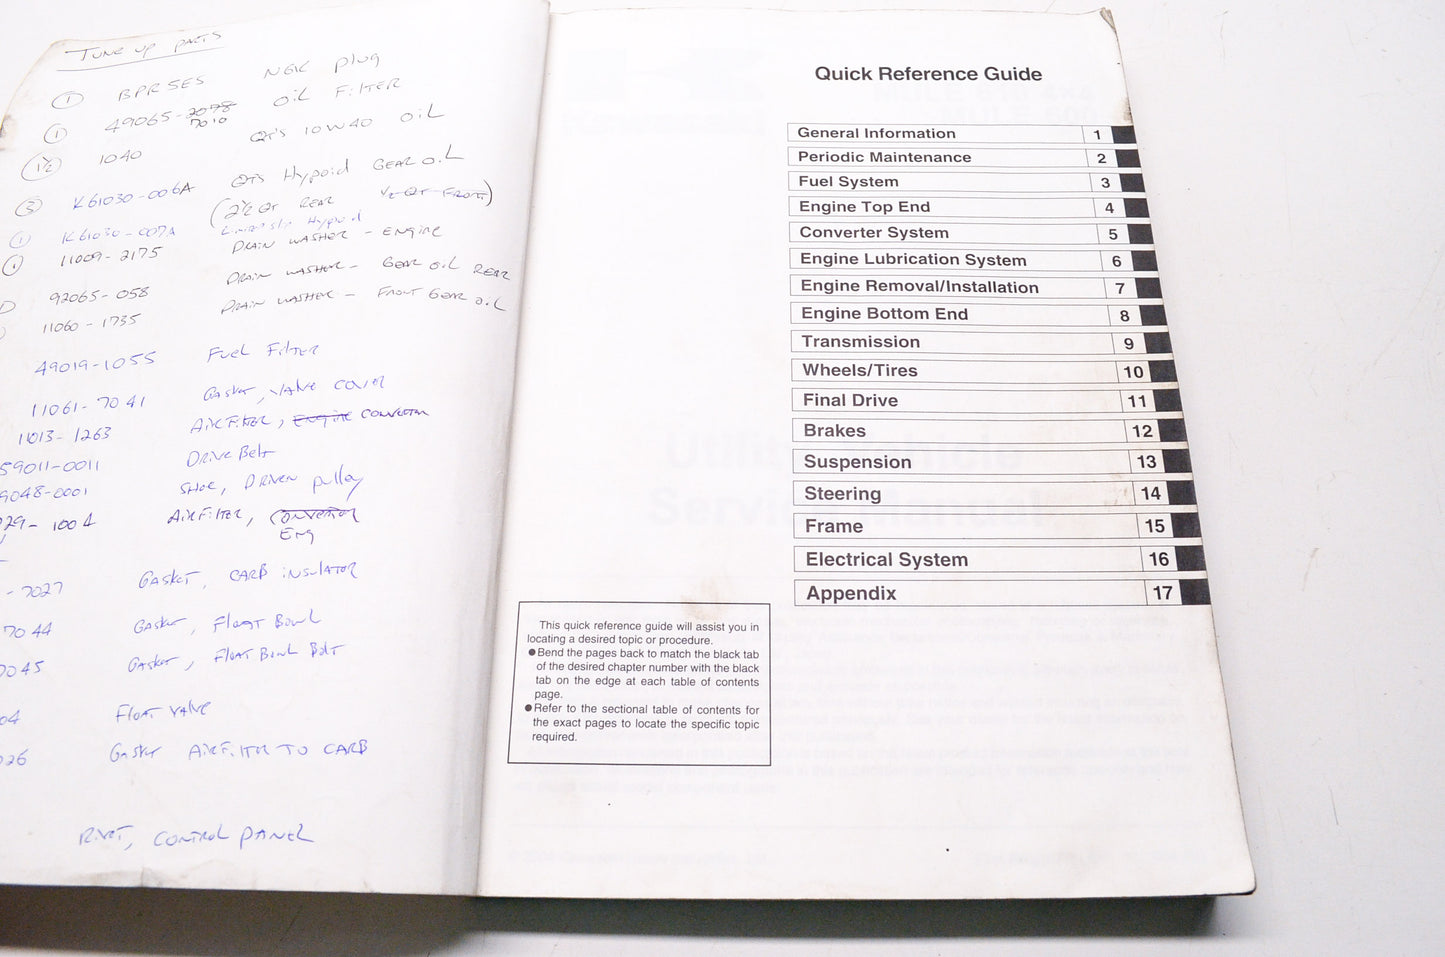 TUNE UP PARTS
① BPR5ES NGK plug
① 49065-2078 OIL FILTER
7010
①½ 1040 QTS 10W40 OIL
③ K61030-006A QTS Hypoid GEAR OIL
(2½ QT REAR ½ QT FRONT)
① K61030-007A Hypoid
① 11009-2175 DRAIN WASHER - ENGINE
92065-058 DRAIN WASHER - GEAR OIL REAR
11060-1735 DRAIN WASHER - FRONT GEAR OIL
49019-1055 FUEL FILTER
11061-7041 Gasket, VALVE COVER
11013-1263 AIR FILTER, ENGINE CONVERTER
59011-0011 DRIVE Belt
9048-0001 SHOE, DRIVEN pulley
029-1004 AIR FILTER, CONVERTER
ENG
-7027 Gasket, CARB INSULATOR
7044 Gasket, Float Bowl
7045 Gasket, Float Bowl Bolt
04 Float VALVE
026 Gasket AIR FILTER TO CARB
RIVET, CONTROL PANEL
Quick Reference Guide
General Information 1
Periodic Maintenance 2
Fuel System 3
Engine Top End 4
Converter System 5
Engine Lubrication System 6
Engine Removal/Installation 7
Engine Bottom End 8
Transmission 9
Wheels/Tires 10
Final Drive 11
Brakes 12
Suspension 13
Steering 14
Frame 15
Electrical System 16
Appendix 17
This quick reference guide will assist you in
locating a desired topic or procedure.
●Bend the pages back to match the black tab
of the desired chapter number with the black
tab on the edge at each table of contents
page.
●Refer to the sectional table of contents for
the exact pages to locate the specific topic
required.
Utility Vehicle
Service Manual